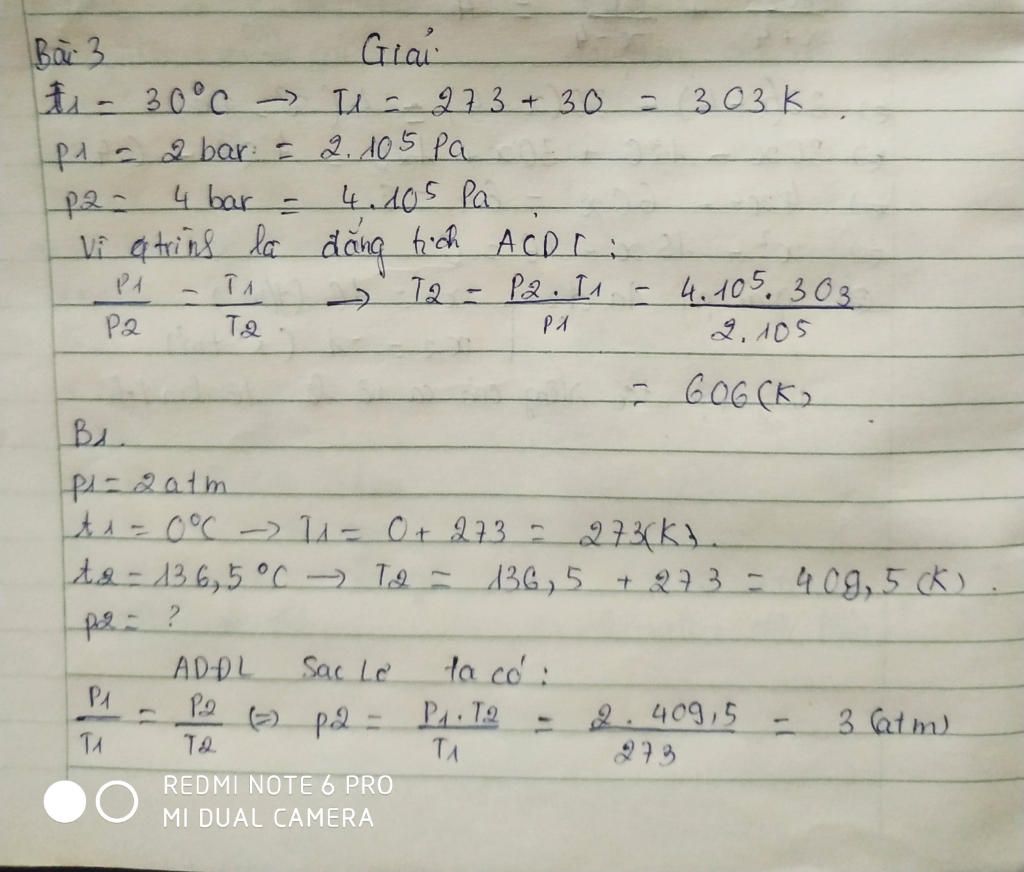 Bài 3 Giải
t1 = 30°C → T1 = 273 + 30 = 303 K
p1 = 2 bar = 2.10⁵ Pa
p2 = 4 bar = 4.10⁵ Pa
Vì qtrình là đẳng tích ACDT :
P1/P2 = T1/T2 → T2 = P2.T1/P1 = 4.10⁵.303/2.10⁵
= 606 (K)
B1.
p1 = 2 atm
t1 = 0°C → T1 = 0 + 273 = 273 (K).
t2 = 136,5 °C → T2 = 136,5 + 273 = 409,5 (K).
p2 = ?
ADĐL Sac Lơ ta có :
P1/T1 = P2/T2 (=) p2 = P1.T2/T1 = 2.409,5/273 = 3 (atm)
REDMI NOTE 6 PRO
MI DUAL CAMERA